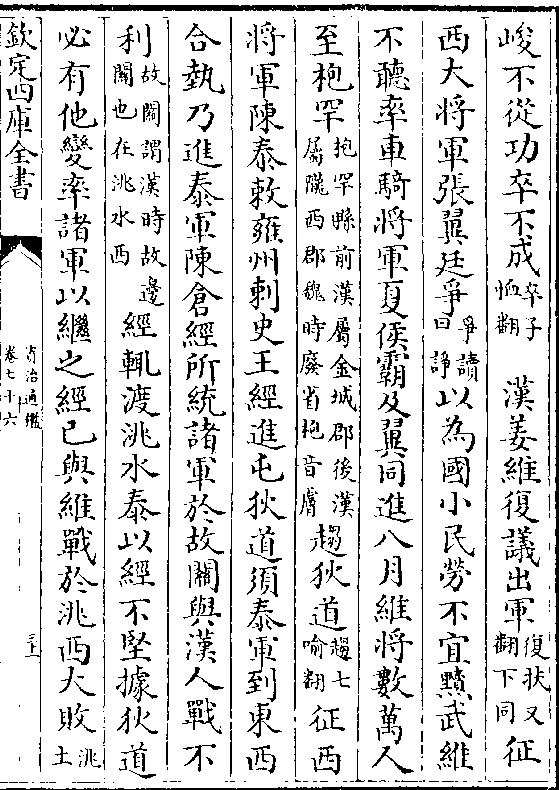 峻不從功卒不成卒子恤翻　漢姜維復議出軍復扶又翻下同征
西大將軍張翼廷爭爭讀曰諍以為國小民勞不宜黷武維
不聽率車騎將軍夏侯霸及翼同進八月維將數萬人
至枹罕枹罕縣前漢屬金城郡後漢屬隴西郡魏時廢省枹音膚趨狄道趨七喻翻征西
將軍陳泰敕雍州刺史王經進屯狄道須泰軍到東西
合埶乃進泰軍陳倉經所統諸軍於故關與漢人戰不
利故關謂漢時故邊關也在洮水西經輒渡洮水泰以經不堅據狄道
必有他變率諸軍以繼之經已與維戰於洮西大敗洮土
欽定四庫全書
資治通鑑
卷七十六